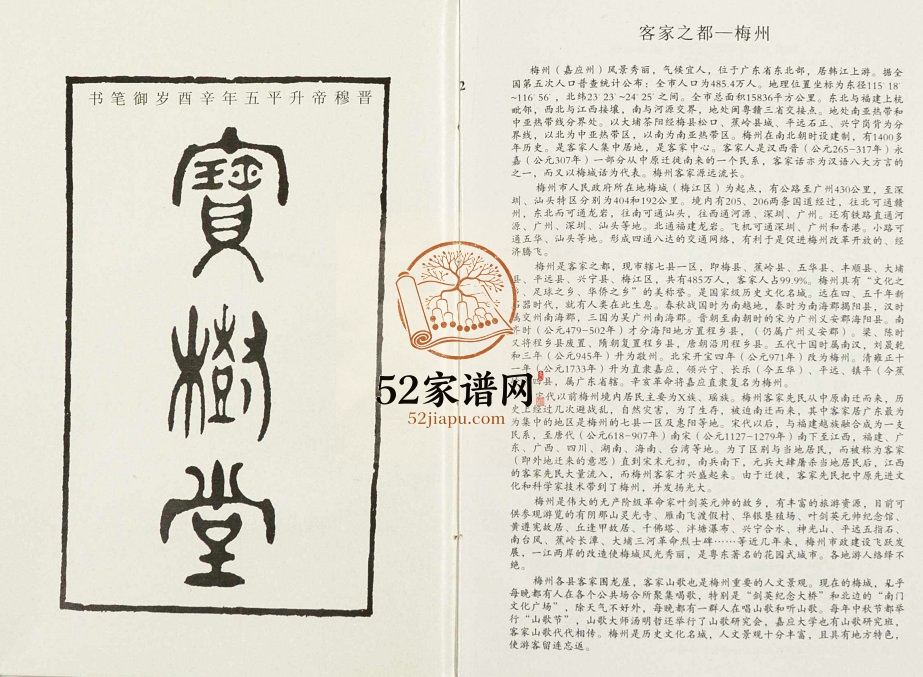 晋穆帝升平五年辛酉岁御笔书
寶
樹
堂
2
客家之都—梅州
梅州（嘉应州）风景秀丽，气候宜人，位于广东省东北部，居韩江上游。据全
国第五次人口普查统计公布：全市人口为485.4万人。地理位置坐标为东径115°18′
~116°56′，北纬23°23′~24°25′之间。全市总面积15836平方公里。东北与福建上杭
毗邻，西北与江西接壤，南与河源交界，地处闽粤赣三省交接点。地处南亚热带和
中亚热带线分界处。以大埔茶阳经梅县松口、蕉岭县城、平远石正、兴宁岗背为分
界线，以北为中亚热带区，以南为南亚热带区。梅州在南北朝时设建制，有1400多
年历史。是客家人集中居地，是客家中心。客家人是汉西晋（公元265-317年）永
嘉（公元307年）一部分从中原迁徙南来的一个民系，客家话亦为汉语八大方言的
之一，而又以梅城话为代表。梅州客家源远流长。
梅州市人民政府所在地梅城（梅江区）为起点，有公路至广州430公里，至深
圳、汕头特区分别为404和192公里。境内有205、206两条国道经过，往北可通赣
州，东北而可通龙岩，往南可通汕头，往西通河源、深圳、广州。还有铁路直通河
源、广州、深圳、汕头等地。北通福建龙岩。飞机可通深圳、广州和香港。小路可
通五华、汕头等地。形成四通八达的交通网络，有利于是促进梅州改革开放的、经
济腾飞。
梅州是客家之都，现市辖七县一区，即梅县、蕉岭县、五华县、丰顺县、大埔
县、平远县、兴宁县、梅江区，共有485万人，客家人占99.9%。梅州具有“文化之
、足球之乡、华侨之乡”的美称誉。是国家级历史文化名城。远在四、五千年新
器时代，就有人类在此生息。春秋战国时为南越地，秦时为南海郡揭阳县，汉时
属交州南海郡，三国为吴广州南海郡。晋朝至南朝时的宋为广州义安郡海阳县。南
齐时（公元479-502年）才分海阳地方置程乡县，（仍属广州义安郡）。梁、陈时
又将程乡县废置，隋朝复置程乡县，唐朝沿用程乡县。五代十国时属南汉，刘晟乾
和三年（公元945年）升为敬州。北宋开宝四年（公元971年）改为梅州。清雍正十
一年（公元1733年）升为直隶嘉应，领兴宁、长乐（今五华）、平远、镇平（今蕉
四县，属广东省辖。辛亥革命将嘉应直隶复名为梅州。
宋代以前梅州境内居民主要为X族、瑶族。梅州客家先民从中原南迁而来，历
史上经过几次避战乱，自然灾害，为了生存，被迫南迁而来，其中客家居广东最为
为集中的地区是梅州的七县一区及惠阳等地。宋代以后，与福建越族融合成为一支
民系，至唐代（公元618-907年）南宋（公元1127-1279年）南下至江西，福建、广
东、广西、四川、湖南、海南、台湾等地。为了区别与当地居民，而被称为客家
（即外地迁来的意思）直到宋末元初，南兵南下，元兵大肆屠杀当地居民后，江西
的客家先民大量流入，而梅州客家才兴盛起来。由于迁徙，客家先民把中原先进文
化和科学家技术带到了梅州，并发扬光大。
梅州是伟大的无产阶级革命家叶剑英元帅的故乡，有丰富的旅游资源，目前可
供参观游览的有阴那山灵光寺、雁南飞渡假村、华银悬殖场、叶剑英元帅纪念馆、
黄遵宪故居、丘逢甲故居、千佛塔、泮塘瀑布、兴宁合水、神光山、平远五指石、
南台风、蕉岭长潭、大埔三河革命烈士碑……等近几年来，梅州市政建设飞跃发
展，一江两岸的改造使梅城风光秀丽，是粤东著名的花园式城市。各地游人络绎不
绝。
梅州各县客家围龙屋，客家山歌也是梅州重要的人文景观。现在的梅城，几乎
每晚都有人在各个公共场合所聚集唱歌，特别是“剑英纪念大桥”和北边的“南门
文化广场”，除天气不好外，每晚都有一群人在唱山歌和听山歌。每年中秋节都举
行“山歌节”，山歌大师汤明哲还举行了山歌研究会，嘉应大学也有山歌研究班，
客家山歌代代相传。梅州是历史文化名城，人文景观十分丰富，且具有地方特色，
使游客留连忘返。
52家谱网
52jiapu.com